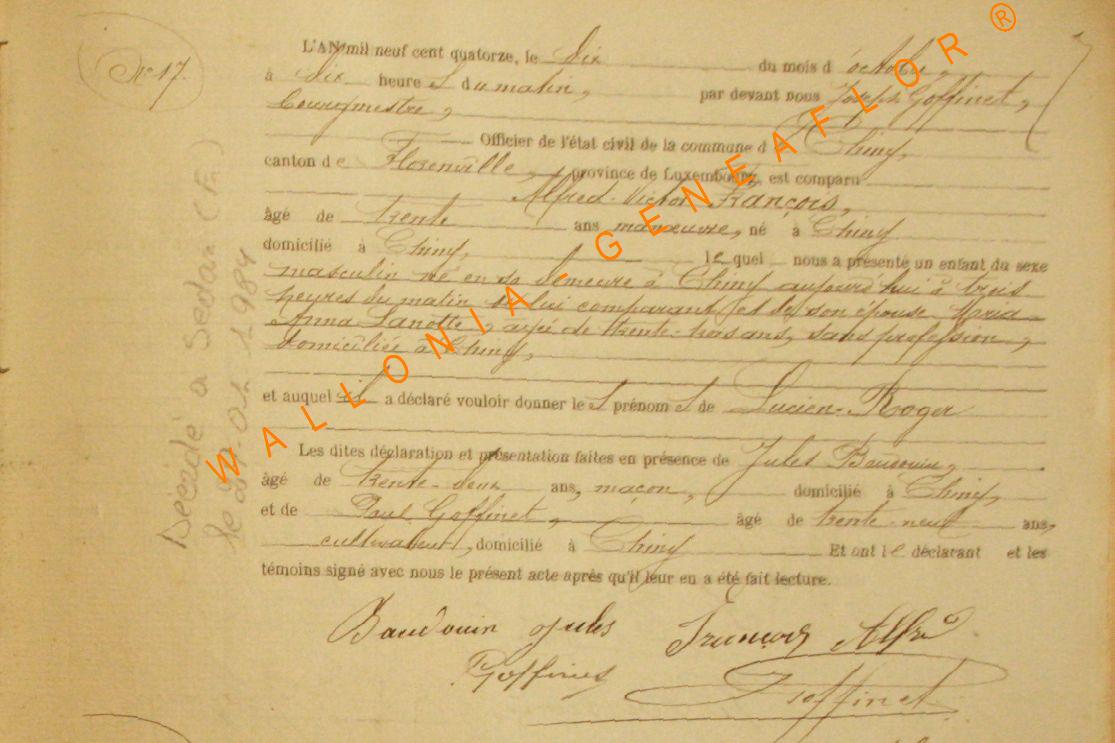 N° 17.
L'AN mil neuf cent quatorze, le dix du mois d'octobre,
à dix heures du matin, par devant nous Joseph Goffinet,
bourgmestre,
Officier de l'état civil de la commune de Chiny,
canton de Florenville, province de Luxembourg, est comparu
Alfred-Victor François,
âgé de trente ans manœuvre, né à Chiny
domicilié à Chiny, lequel nous a présenté un enfant du sexe
masculin né en sa demeure à Chiny aujourd'hui à trois
heures du matin de lui comparant et de son épouse Maria-
Anna Lanotte, âgée de trente-trois ans, sans profession,
domiciliée à Chiny,
et auquel il a déclaré vouloir donner les prénoms de Lucien-Roger
Les dites déclaration et présentation faites en présence de Jules Baudouin,
âgé de trente-deux ans, maçon, domicilié à Chiny,
et de Paul Goffinet, âgé de trente-neuf ans,
cultivateur, domicilié à Chiny Et ont le déclarant et les
témoins signé avec nous le présent acte après qu'il leur en a été fait lecture.
Baudouin Jules François Alfred
Goffinet Goffinet
Décédé à Sedan (F.)
le 1984
WALLONIA-GENEAFLOR ®